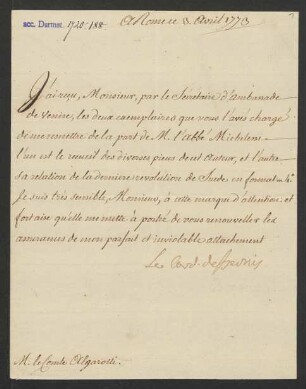 acc. Darmst. 1920.188
A Rome ce 3 Avril 1773
J'ai reçu, Monsieur, par le Sécretaire d'ambassade
de Venise, les deux exemplaires que vous l'avés chargé
de me mettre de la part de M. l'Abbé Michelessi
l'un est le recueil des diverses pieces de cet Auteur, et l'autre
sa relation de la derniere revolution de Suede, en format in 4°.
Je suis très sensible, Monsieur, à cette marque d'attention: et
fort aise qu'elle me mette à portée de vous renouveller les
assurances de mon parfait et inviolable attachement
Le Card. de Bernis
M. le Comte Algarotti.